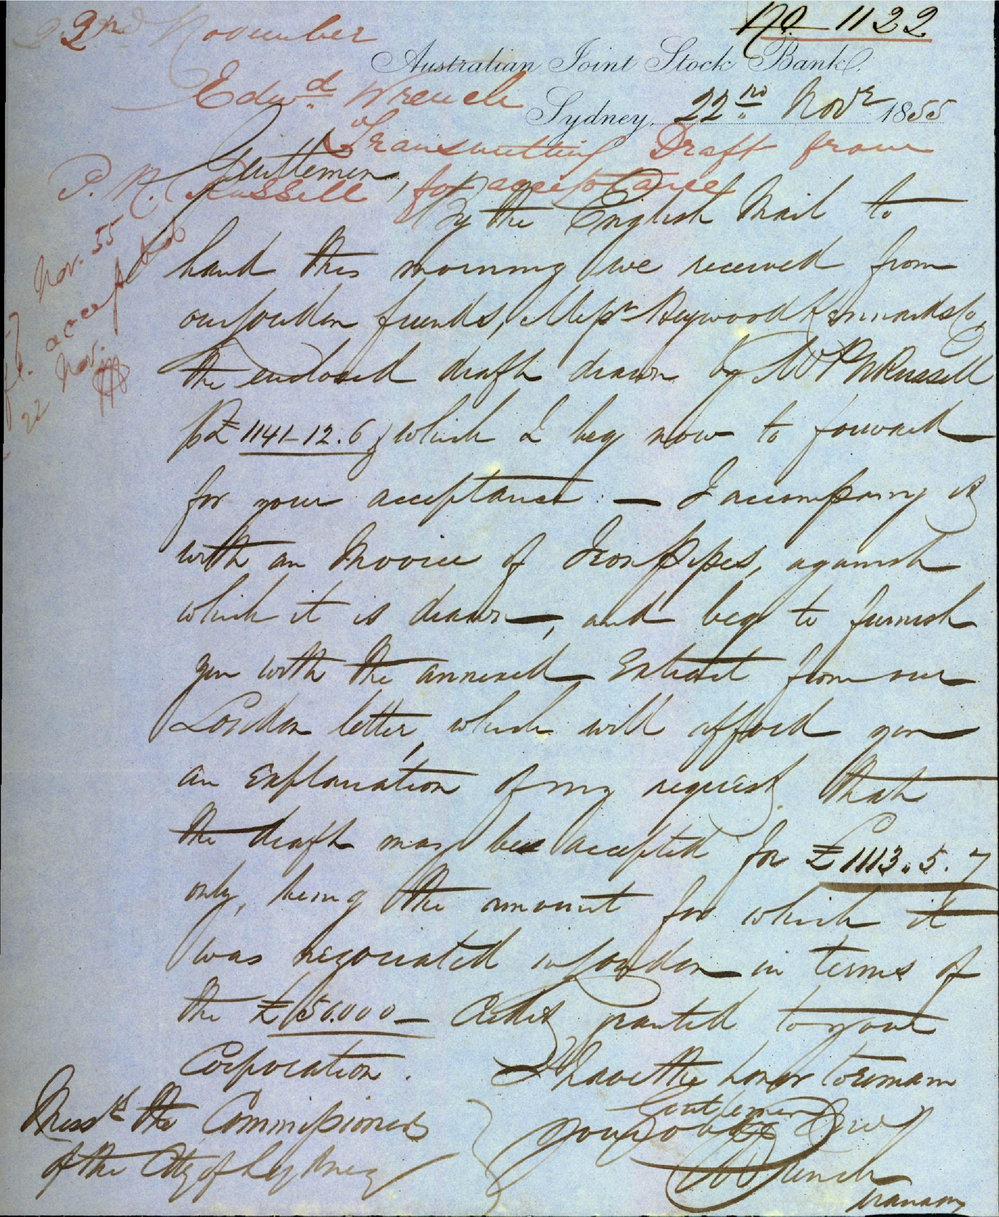 No. 1122
22nd November
Australian Joint Stock Bank.
Edwd Wrench
Sydney, 22nd Novr 1855
Transmitting Draft from
Gentlemen,
P. N. Russell, for acceptance
By the English Mail to
hand this morning we received from
our London friends, Messrs Heywood Kennards & Co
the enclosed draft drawn by Mr P N Russell
for £1141-12.6, which I beg now to forward
for your acceptance. — I accompany it
with an Invoice of Iron Pipes, against
which it is drawn, and beg to furnish
you with the annexed Extract from our
London letter, which will afford you
an explanation of my request that
the draft may be accepted for £1113.5.7
only, being the amount for which it
was negociated in London in terms of
the £150.000 — Credit granted to your
Corporation.
I have the honor to remain
Gentlemen
Your Obedt Serv
Wrench
Manager
Messrs the Commissioners
of the City of Sydney
Nov. 55
accepted
22 Nov.